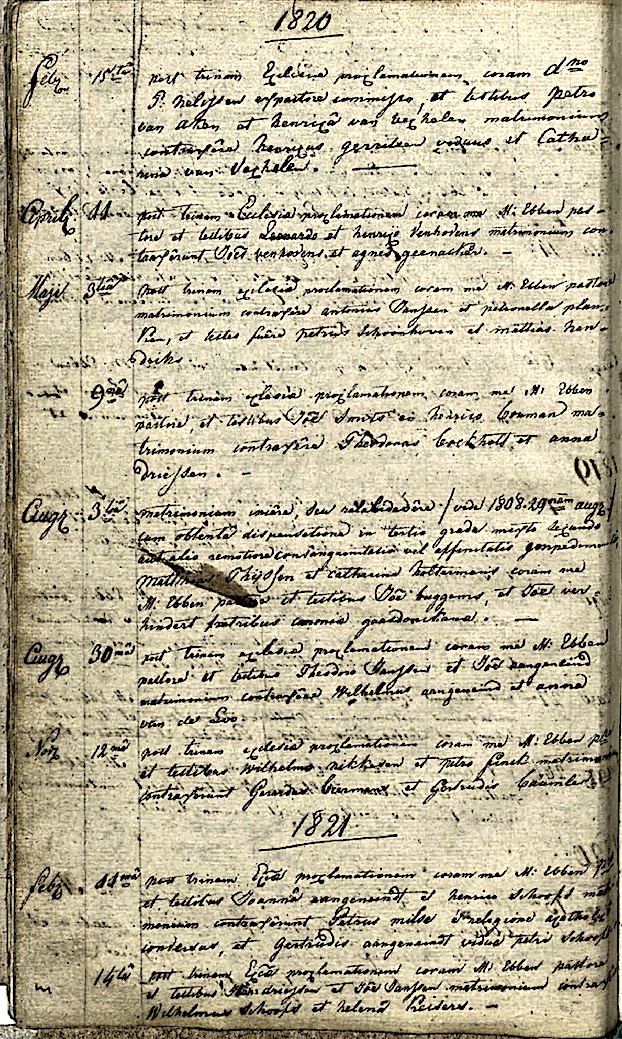 1820
Feb 15ta post trinam Eclesiæ proclamationem coram dno
P. Nelissen ex pastore commisso et testibus Petro
van Aken et henricâ van vechelen matrimonium
contraxêre henricus gerritzen viduus et Catha=
rina van Vechelen.
April 11 post trinam Eclesiæ proclamationem coram me M: Ebben pas=
tore et testibus Leonardo et henrico Venhovens matrimonium con
traxêrunt Joês venhovens et agnes geenacker. —
Maji 3tia post trinam eclesiæ proclamationem coram me M: Ebben pastore
matrimonium contraxêre antonius Janssen et petronella plan=
ken, et testes fuêre petrus Schoonhoven et mattias hen=
driks.
9na post trinam eclesiæ proclamationem coram me M: Ebben
pastore, et testibus Joê Smits et henrico Corman ma=
trimonium contraxêre Theodorus Cockholt et anna
Driessen. —
Aug 3tia matrimonium iniêre, seu / vide 1808. 29 aug /
cum obtentâ dispensatione in tertio gradu mixto
aut alio remotiore consanguinitatis vel affinitatis
Matthias Thijssen et Catharina holtermans coram me
M: Ebben pastore et testibus Joê buggems, et Joê ver
hindert fratribus
Aug 30 post trinam eclesiæ proclamationem coram me M: Ebben
pastore et testibus Theodoro Janssen et Joê aangeneind
matrimonium contraxêre Wilhelmus aangeneind et anna
van de Loo.
Nov 12ma post trinam eclesiæ proclamationem coram me M: Ebben
et testibus Wilhelmo et petro matrimonium
contraxêrunt Gerardus et Gertrudis
1821
Feb 11ma post trinam Eccæ proclamationem coram me M: Ebben
et testibus Joannâ aangeneindt et henrico Schoofs
monium contraxêrunt Petrus milse religione
conversus, et Gertrudis aangeneindt vidua petri Schoofs
14ta post trinam Eccæ proclamationem coram M: Ebben pastore
et testibus driessen et Joê Janssen matrimonium
Wilhelmus Schoofs et helena Keisers. —